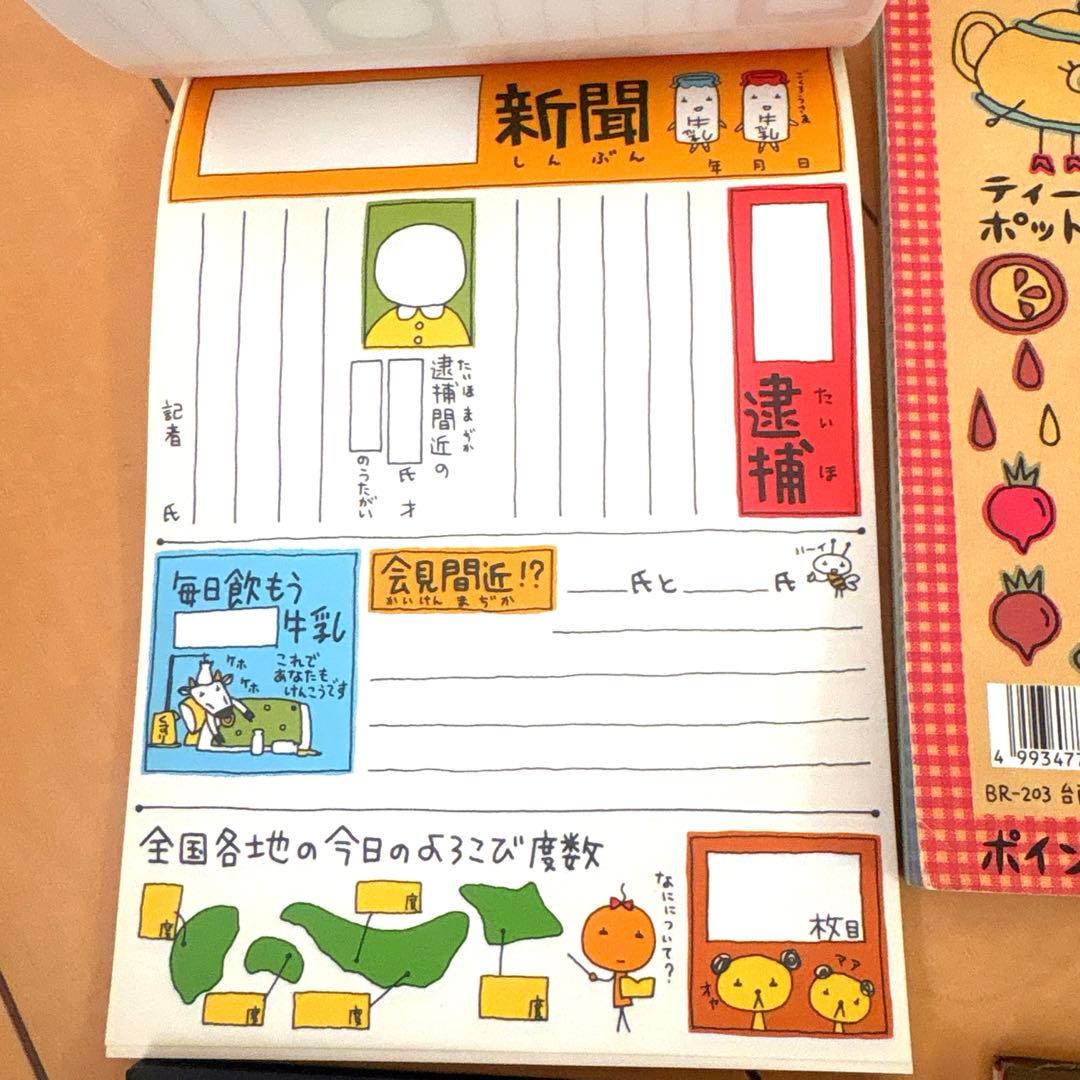 新聞
しんぶん
牛乳
牛乳
ごくろうさま
年 月 日
逮捕
たいほ
逮捕間近の
たいほまぢか
氏 才
のうたがい
記者 氏
毎日飲もう
牛乳
これで
あなたも
けんこうです
ケホ
ケホ
くすり
会見間近!?
かいけんまぢか
氏と 氏
ハーイ
全国各地の今日のよろこび度数
度
度
度
度
度
なにについて?
枚目
オヤ
マア
ティー
ポット
4 99347
BR-203
ポイン